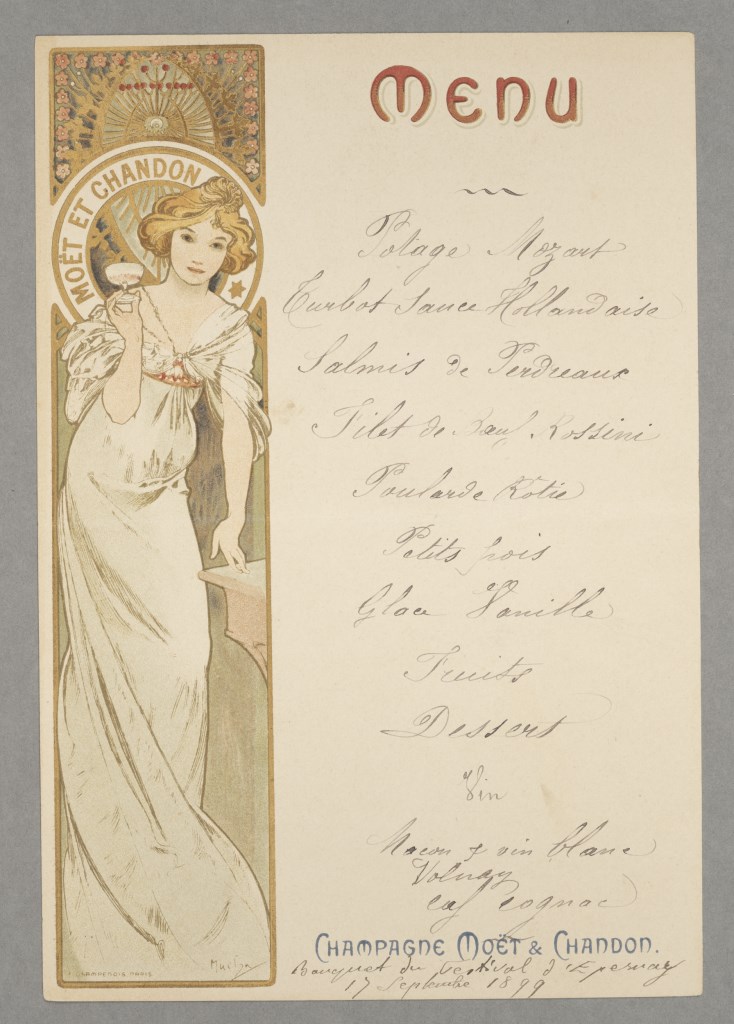 MOËT ET CHANDON
MENU
Potage Mozart
Turbot Sauce Hollandaise
Salmis de Perdreaux
Filet de Bœuf Rossini
Poularde Rotie
Petits pois
Glace Vanille
Fruits
Dessert
Vin
Macon & vin blanc
Volnay
Caf Cognac
CHAMPAGNE MOËT & CHANDON.
Banquet du Festival d'Epernay
17 Septembre 1899
Mucha
F. CHAMPENOIS PARIS